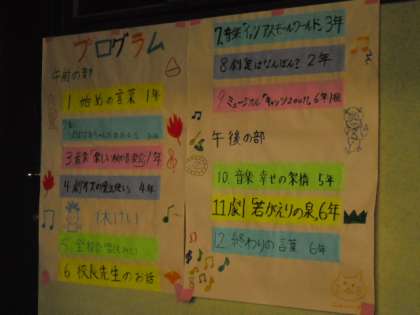 プログラム
午前の部
1 始めの言葉 1年
3 音楽 1年
4 劇 4年
休けい
5 全校合唱
6 校長先生のお話
7 音楽「イッツ ア スモールワールド」 3年
8 劇 足はなんぼん? 2年
9 ミュージカル「キャッツ 6年
午後の部
10 音楽 幸せの架橋 5年
11 劇「若がえりの泉」6年
12 終わりの言葉 6年